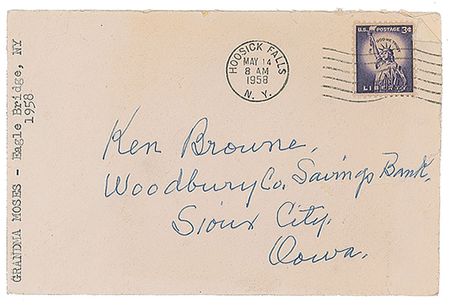 GRANDMA MOSES - Eagle Bridge, NY
1958
HOOSICK FALLS
MAY 14
8 AM
1958
N. Y.
U.S. POSTAGE 3¢
IN GOD WE TRUST
LIBERTY
Ken Browne,
Woodbury Co. Savings Bank,
Sioux City.
Iowa.